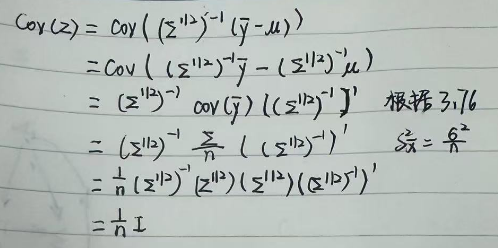 Cov(z) = Cov((Σ^{1/2})^{-1}(ȳ-μ))
= Cov((Σ^{1/2})^{-1}ȳ - (Σ^{1/2})^{-1}μ)
= (Σ^{1/2})^{-1} cov(ȳ) ((Σ^{1/2})^{-1})' 根据3.76
= (Σ^{1/2})^{-1} Σ/n ((Σ^{1/2})^{-1})' S²_x̄ = σ²/n
= 1/n (Σ^{1/2})^{-1} (Σ^{1/2})(Σ^{1/2})((Σ^{1/2})^{-1})'
= 1/n I